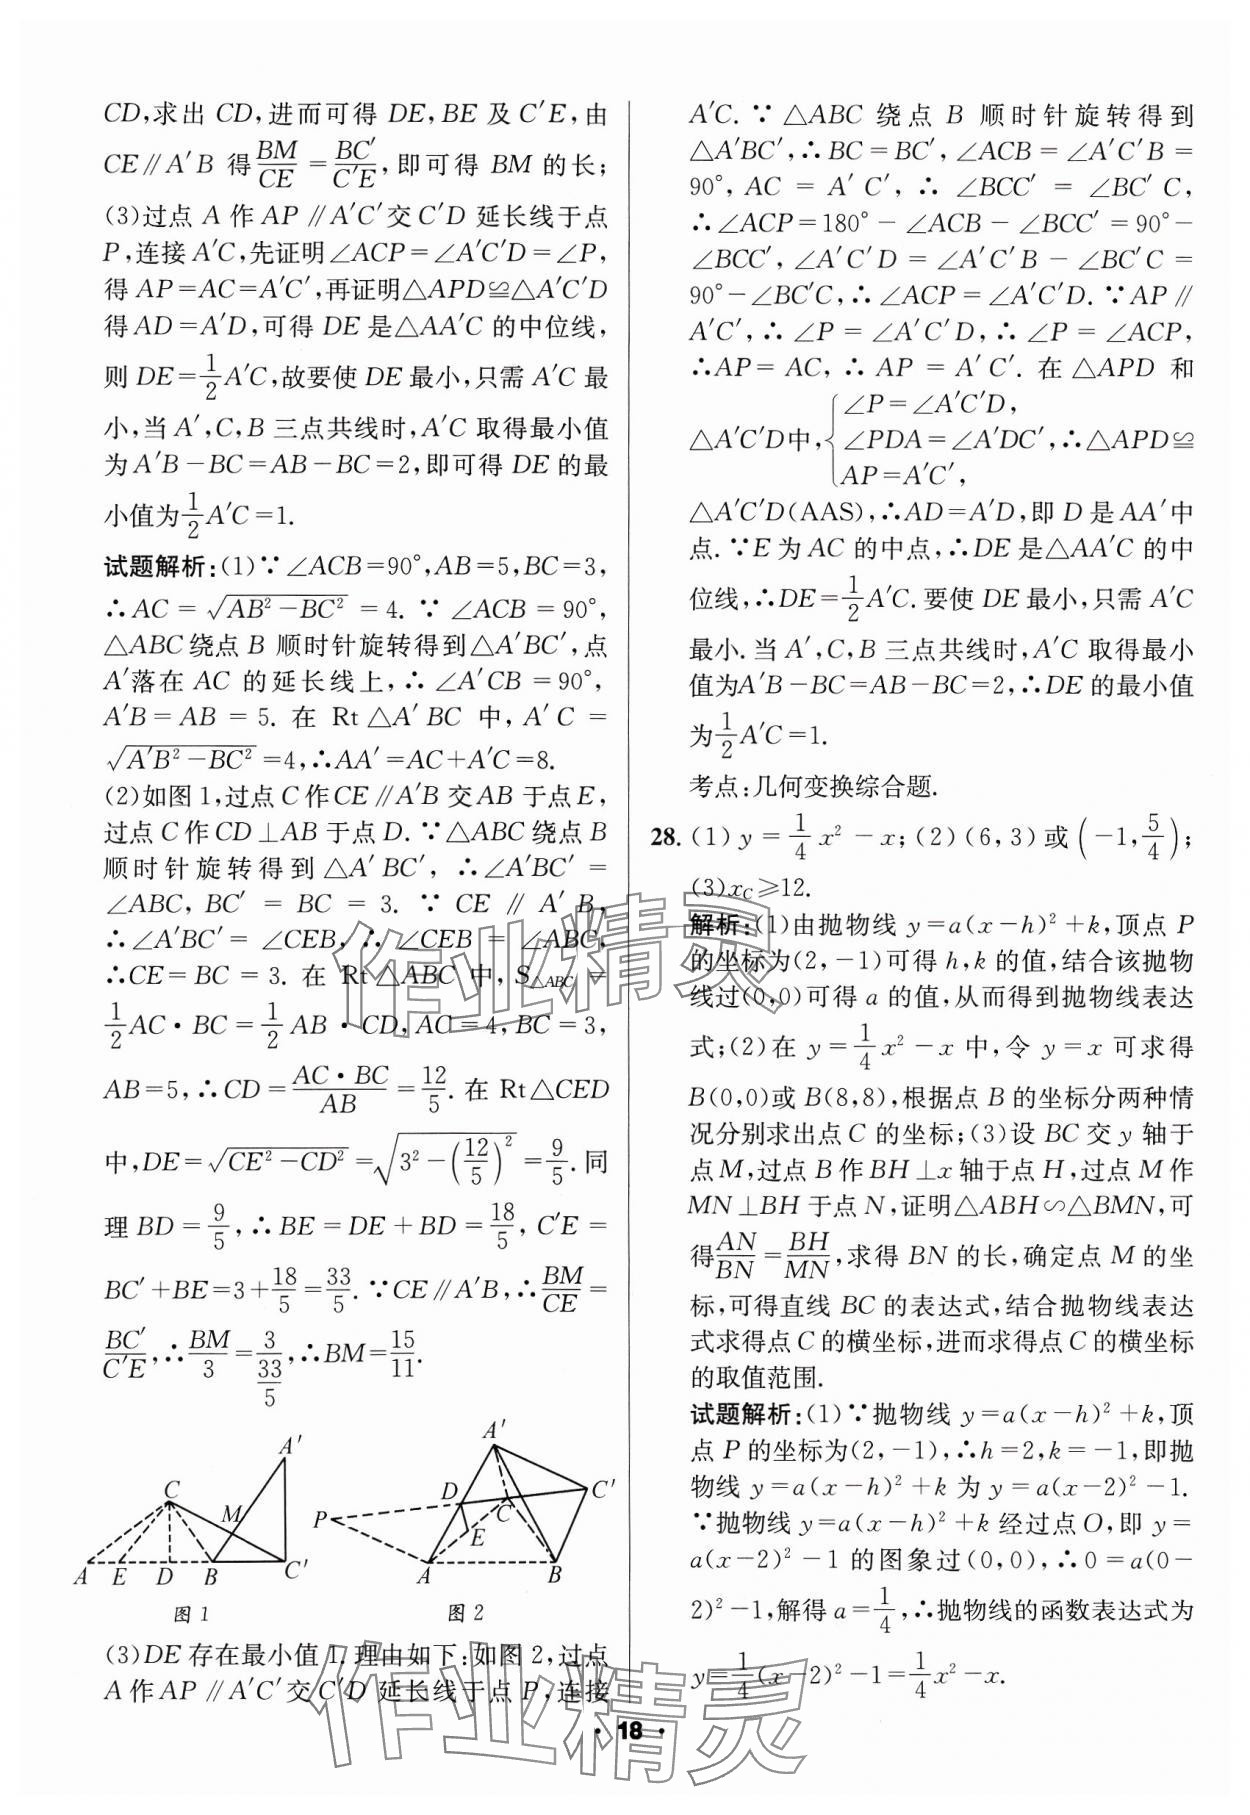 CD,求出 CD,进而可得 DE,BE 及 C′E,由
CE∥A′B 得 BM/CE = BC′/C′E,即可得 BM 的长;
(3)过点 A 作 AP∥A′C′交 C′D 延长线于点
P,连接 A′C,先证明∠ACP=∠A′C′D=∠P,
得 AP=AC=A′C′,再证明△APD≌△A′C′D
得 AD=A′D,可得 DE 是△AA′C 的中位线,
则 DE=1/2 A′C,故要使 DE 最小,只需 A′C 最
小,当 A′,C,B 三点共线时,A′C 取得最小值
为 A′B-BC=AB-BC=2,即可得 DE 的最
小值为 1/2 A′C=1.
试题解析:(1)∵∠ACB=90°,AB=5,BC=3,
∴AC=√(AB²-BC²)=4. ∵∠ACB=90°,
△ABC绕点 B 顺时针旋转得到△A′BC′,点
A′落在 AC 的延长线上,∴∠A′CB=90°,
A′B=AB=5. 在 Rt△A′BC 中,A′C=
√(A′B²-BC²)=4,∴AA′=AC+A′C=8.
(2)如图1,过点C作CE∥A′B 交AB 于点E,
过点 C作 CD⊥AB 于点 D. ∵△ABC绕点 B
顺时针旋转得到△A′BC′,∴∠A′BC′=
∠ABC,BC′=BC=3. ∵CE∥A′B,
∴∠A′BC′=∠CEB,∴∠CEB=∠ABC,
∴CE=BC=3. 在 Rt△ABC 中,S△ABC=
1/2 AC·BC=1/2 AB·CD,AC=4,BC=3,
AB=5,∴CD=AC·BC/AB=12/5. 在 Rt△CED
中,DE=√(CE²-CD²)=√(3²-(12/5)²)=9/5. 同
理 BD=9/5,∴BE=DE+BD=18/5,C′E=
BC′+BE=3+18/5=33/5. ∵CE∥A′B,∴BM/CE=
BC′/C′E,∴BM/3=3/(33/5),∴BM=15/11.
A′
C
M
A E D B C′
图 1
A′
D
C
C′
P
E
A
B
图 2
(3)DE 存在最小值 1. 理由如下:如图 2,过点
A 作 AP∥A′C′交 C′D 延长线于点 P,连接
A′C. ∵△ABC 绕点 B 顺时针旋转得到
△A′BC′,∴BC=BC′,∠ACB=∠A′C′B=
90°,AC=A′C′,∴∠BCC′=∠BC′C,
∴∠ACP=180°-∠ACB-∠BCC′=90°-
∠BCC′,∠A′C′D=∠A′C′B-∠BC′C=
90°-∠BC′C,∴∠ACP=∠A′C′D. ∵AP∥
A′C′,∴∠P=∠A′C′D,∴∠P=∠ACP,
∴AP=AC,∴AP=A′C′. 在△APD 和
△A′C′D中,{∠P=∠A′C′D,
∠PDA=∠A′DC′,∴△APD≌
AP=A′C′,
△A′C′D(AAS),∴AD=A′D,即 D 是AA′中
点. ∵E 为 AC 的中点,∴DE 是△AA′C 的中
位线,∴DE=1/2 A′C. 要使 DE 最小,只需 A′C
最小. 当 A′,C,B 三点共线时,A′C 取得最小
值为A′B-BC=AB-BC=2,∴DE的最小值
为 1/2 A′C=1.
考点:几何变换综合题.
28. (1) y=1/4 x²-x; (2) (6,3)或(-1,5/4);
(3)x_C≥12.
解析:(1)由抛物线 y=a(x-h)²+k,顶点 P
的坐标为(2,-1)可得 h,k 的值,结合该抛物
线过(0,0)可得 a 的值,从而得到抛物线表达
式;(2)在 y=1/4 x²-x 中,令 y=x 可求得
B(0,0)或 B(8,8),根据点 B 的坐标分两种情
况分别求出点 C 的坐标;(3)设 BC 交 y 轴于
点M,过点 B 作 BH⊥x 轴于点 H,过点 M 作
MN⊥BH 于点 N,证明△ABH∽△BMN,可
得 AN/BN=BH/MN,求得 BN 的长,确定点 M 的坐
标,可得直线 BC 的表达式,结合抛物线表达
式求得点 C 的横坐标,进而求得点 C 的横坐标
的取值范围.
试题解析:(1)∵抛物线 y=a(x-h)²+k,顶
点 P 的坐标为(2,-1),∴h=2,k=-1,即抛
物线 y=a(x-h)²+k 为 y=a(x-2)²-1.
∵抛物线 y=a(x-h)²+k 经过点 O,即 y=
a(x-2)²-1 的图象过(0,0),∴0=a(0-
2)²-1,解得 a=1/4,∴抛物线的函数表达式为
y=1/4(x-2)²-1=1/4 x²-x.
· 18 ·
作业精灵
作业精灵